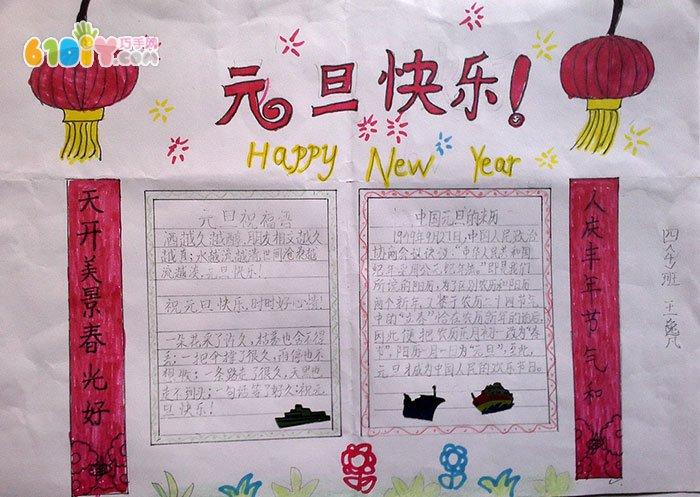 61DIY巧手网
.com
元旦快乐!
Happy New Year
天开美景春光好
元旦祝福语
酒越久越醇,朋友相交越久
越真;水越流越清世间沧桑越
流越淡。元旦快乐!
祝元旦快乐,时时好心情!
一朵花采了许久,枯萎也舍不得
丢;一把伞撑了很久,雨停也不
想收;一条路走了很久,天黑也
走不到头;一句话等了好久:祝元
旦快乐!
中国元旦的来历
1949年9月27日,中国人民政治
协商会议决议:“中华人民共和国
纪年采用公元纪年法。”即是我们
所说的阳历,为了区别农历和阳历
两个新年,又鉴于农历二十四节气
中的“立春”恰在农历新年的前后,
因此便把农历正月初一改为“春
节”,阳历一月一日为“元旦”,至此,
元旦才成为中国人民的欢乐节日。
人庆丰年节气和
四(4)班 王